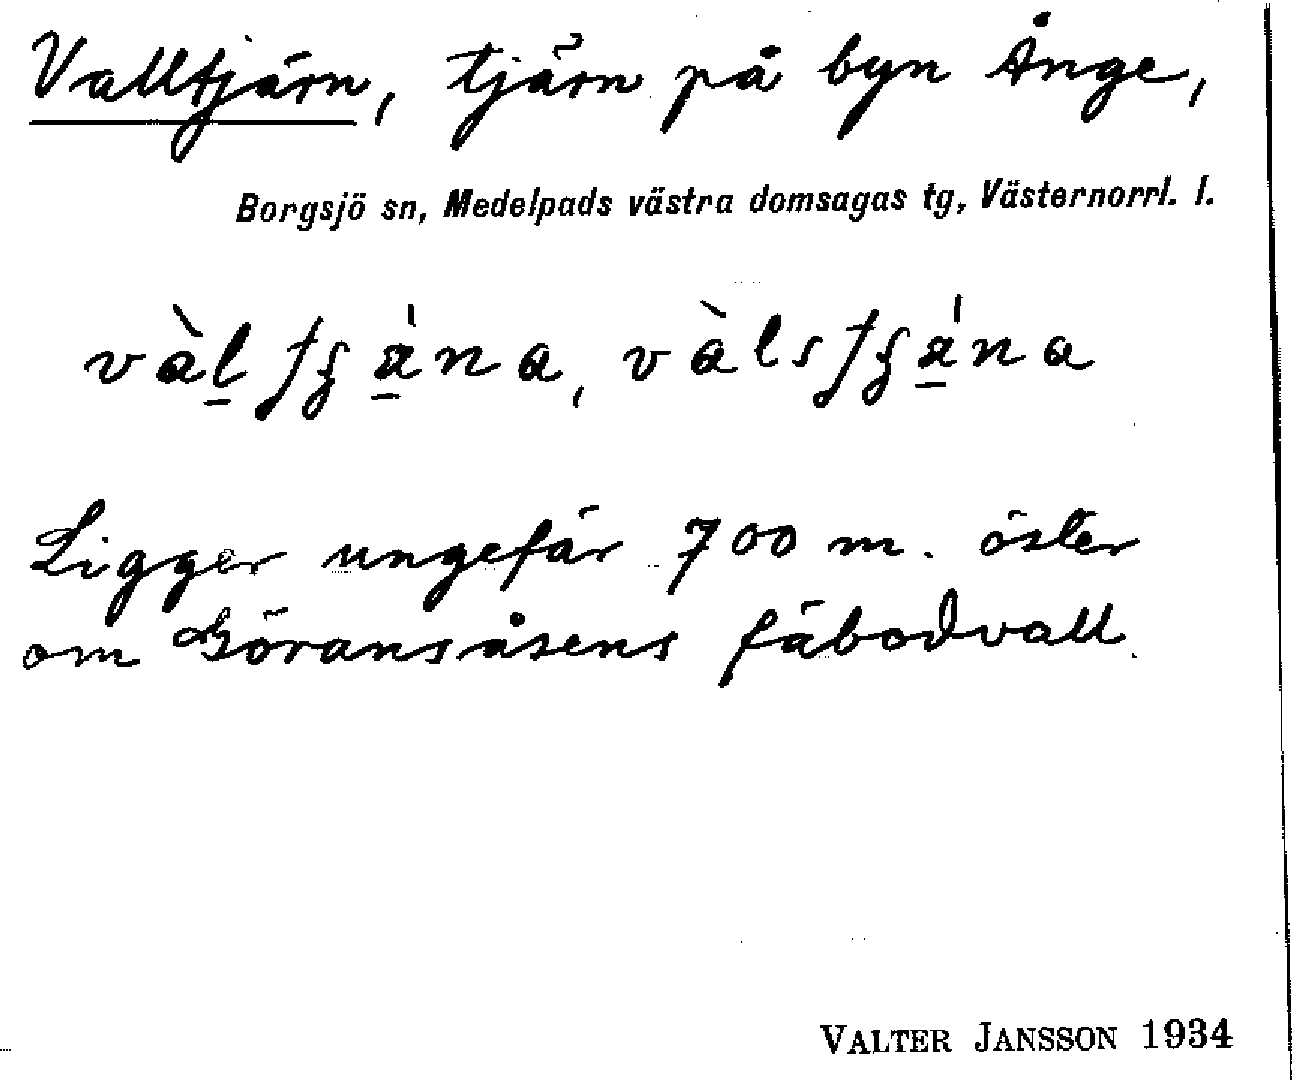 Valltjärn, tjärn på byn Ånge,
Borgsjö sn, Medelpads västra domsagas tg, Västernorrl. l.
Ligger ungefär 700 m. öster
om Göransåsens fäbodvall.
VALTER JANSSON 1934